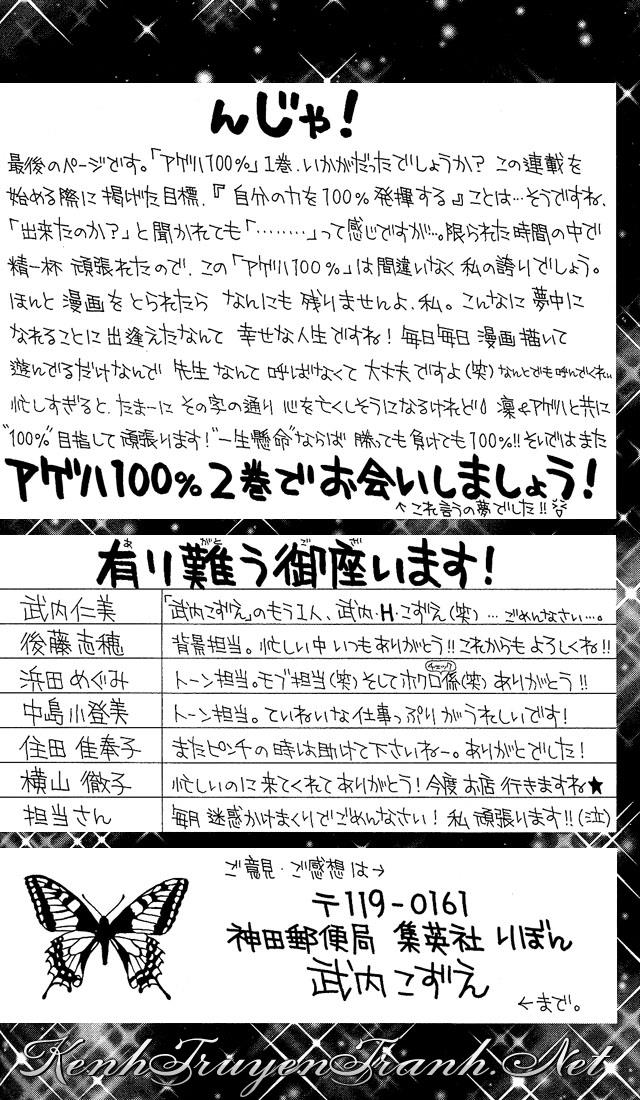 んじゃ!
最後のページです。「アゲハ100%」1巻、いかがだったでしょうか? この連載を
始める際に掲げた目標、『自分の力を100%発揮する』ことは…そうですね、
「出来たのか?」と聞かれても「………」って感じですが…。限られた時間の中で
精一杯 頑張れたので、この「アゲハ100%」は間違いなく私の誇りでしょう。
ほんと 漫画をとられたら なんにも残りませんよ、私。こんなに夢中に
なれることに出逢えたなんて 幸せな人生ですね! 毎日毎日 漫画描いて
遊んでるだけなんで 先生なんて呼ばなくて大丈夫ですよ(笑) なんとでも呼んでくれい
忙しすぎると、たまーに その字の通り 心を亡くしそうになるけれど 凛やアゲハと共に
"100%"目指して頑張ります! "一生懸命"ならば 勝っても負けても100%!! そいではまた
アゲハ100% 2巻でお会いしましょう!
↑これ言うの夢でした!!
あ がと ご ざ
有り難う御座います!
武内仁美 「武内こずえ」のもう1人、武内・H・こずえ(笑) …ごめんなさい…。
後藤志穂 背景担当。忙しい中いつもありがとう!! これからもよろしくね!!
浜田めぐみ トーン担当。モブ担当(笑)そしてホクロ係(笑) ありがとう!!
チェック
中島小登美 トーン担当。ていねいな仕事っぷりがうれしいです!
住田佳奉子 またピンチの時は助けて下さいねー。ありがとでした!
横山徹子 忙しいのに来てくれてありがとう! 今度お店行きますね★
担当さん 毎月迷惑かけまくりでごめんなさい! 私頑張ります!!(泣)
ご意見・ご感想は→
〒119-0161
神田郵便局 集英社 りぼん
武内こずえ
←まで。
KenhTruyenTranh.Net